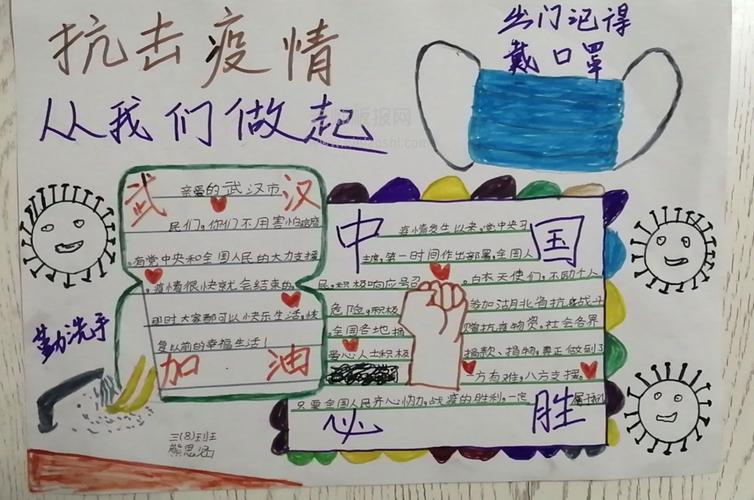 抗击疫情
从我们做起
出门记得
戴口罩
武汉
亲爱的武汉市
民们，你们不用害怕
有党中央和全国人民的大力支援
，疫情很快就会结束的
即时大家都可以快乐生活，恢
复以前的幸福生活！
加油
勤洗手
三(8)班
熊思涵
中国
疫情发生以来，党中央习
主席，第一时间作出部署，全国人
民，积极响应号召，白衣天使们，不顾个人
危险，积极参加湖北省抗疫战斗
全国各地捐赠抗疫物资。社会各界
爱心人士积极捐款、捐物，真正做到了
一方有难，八方支援。
只要全国人民齐心协力，战疫的胜利，一定属于
必胜